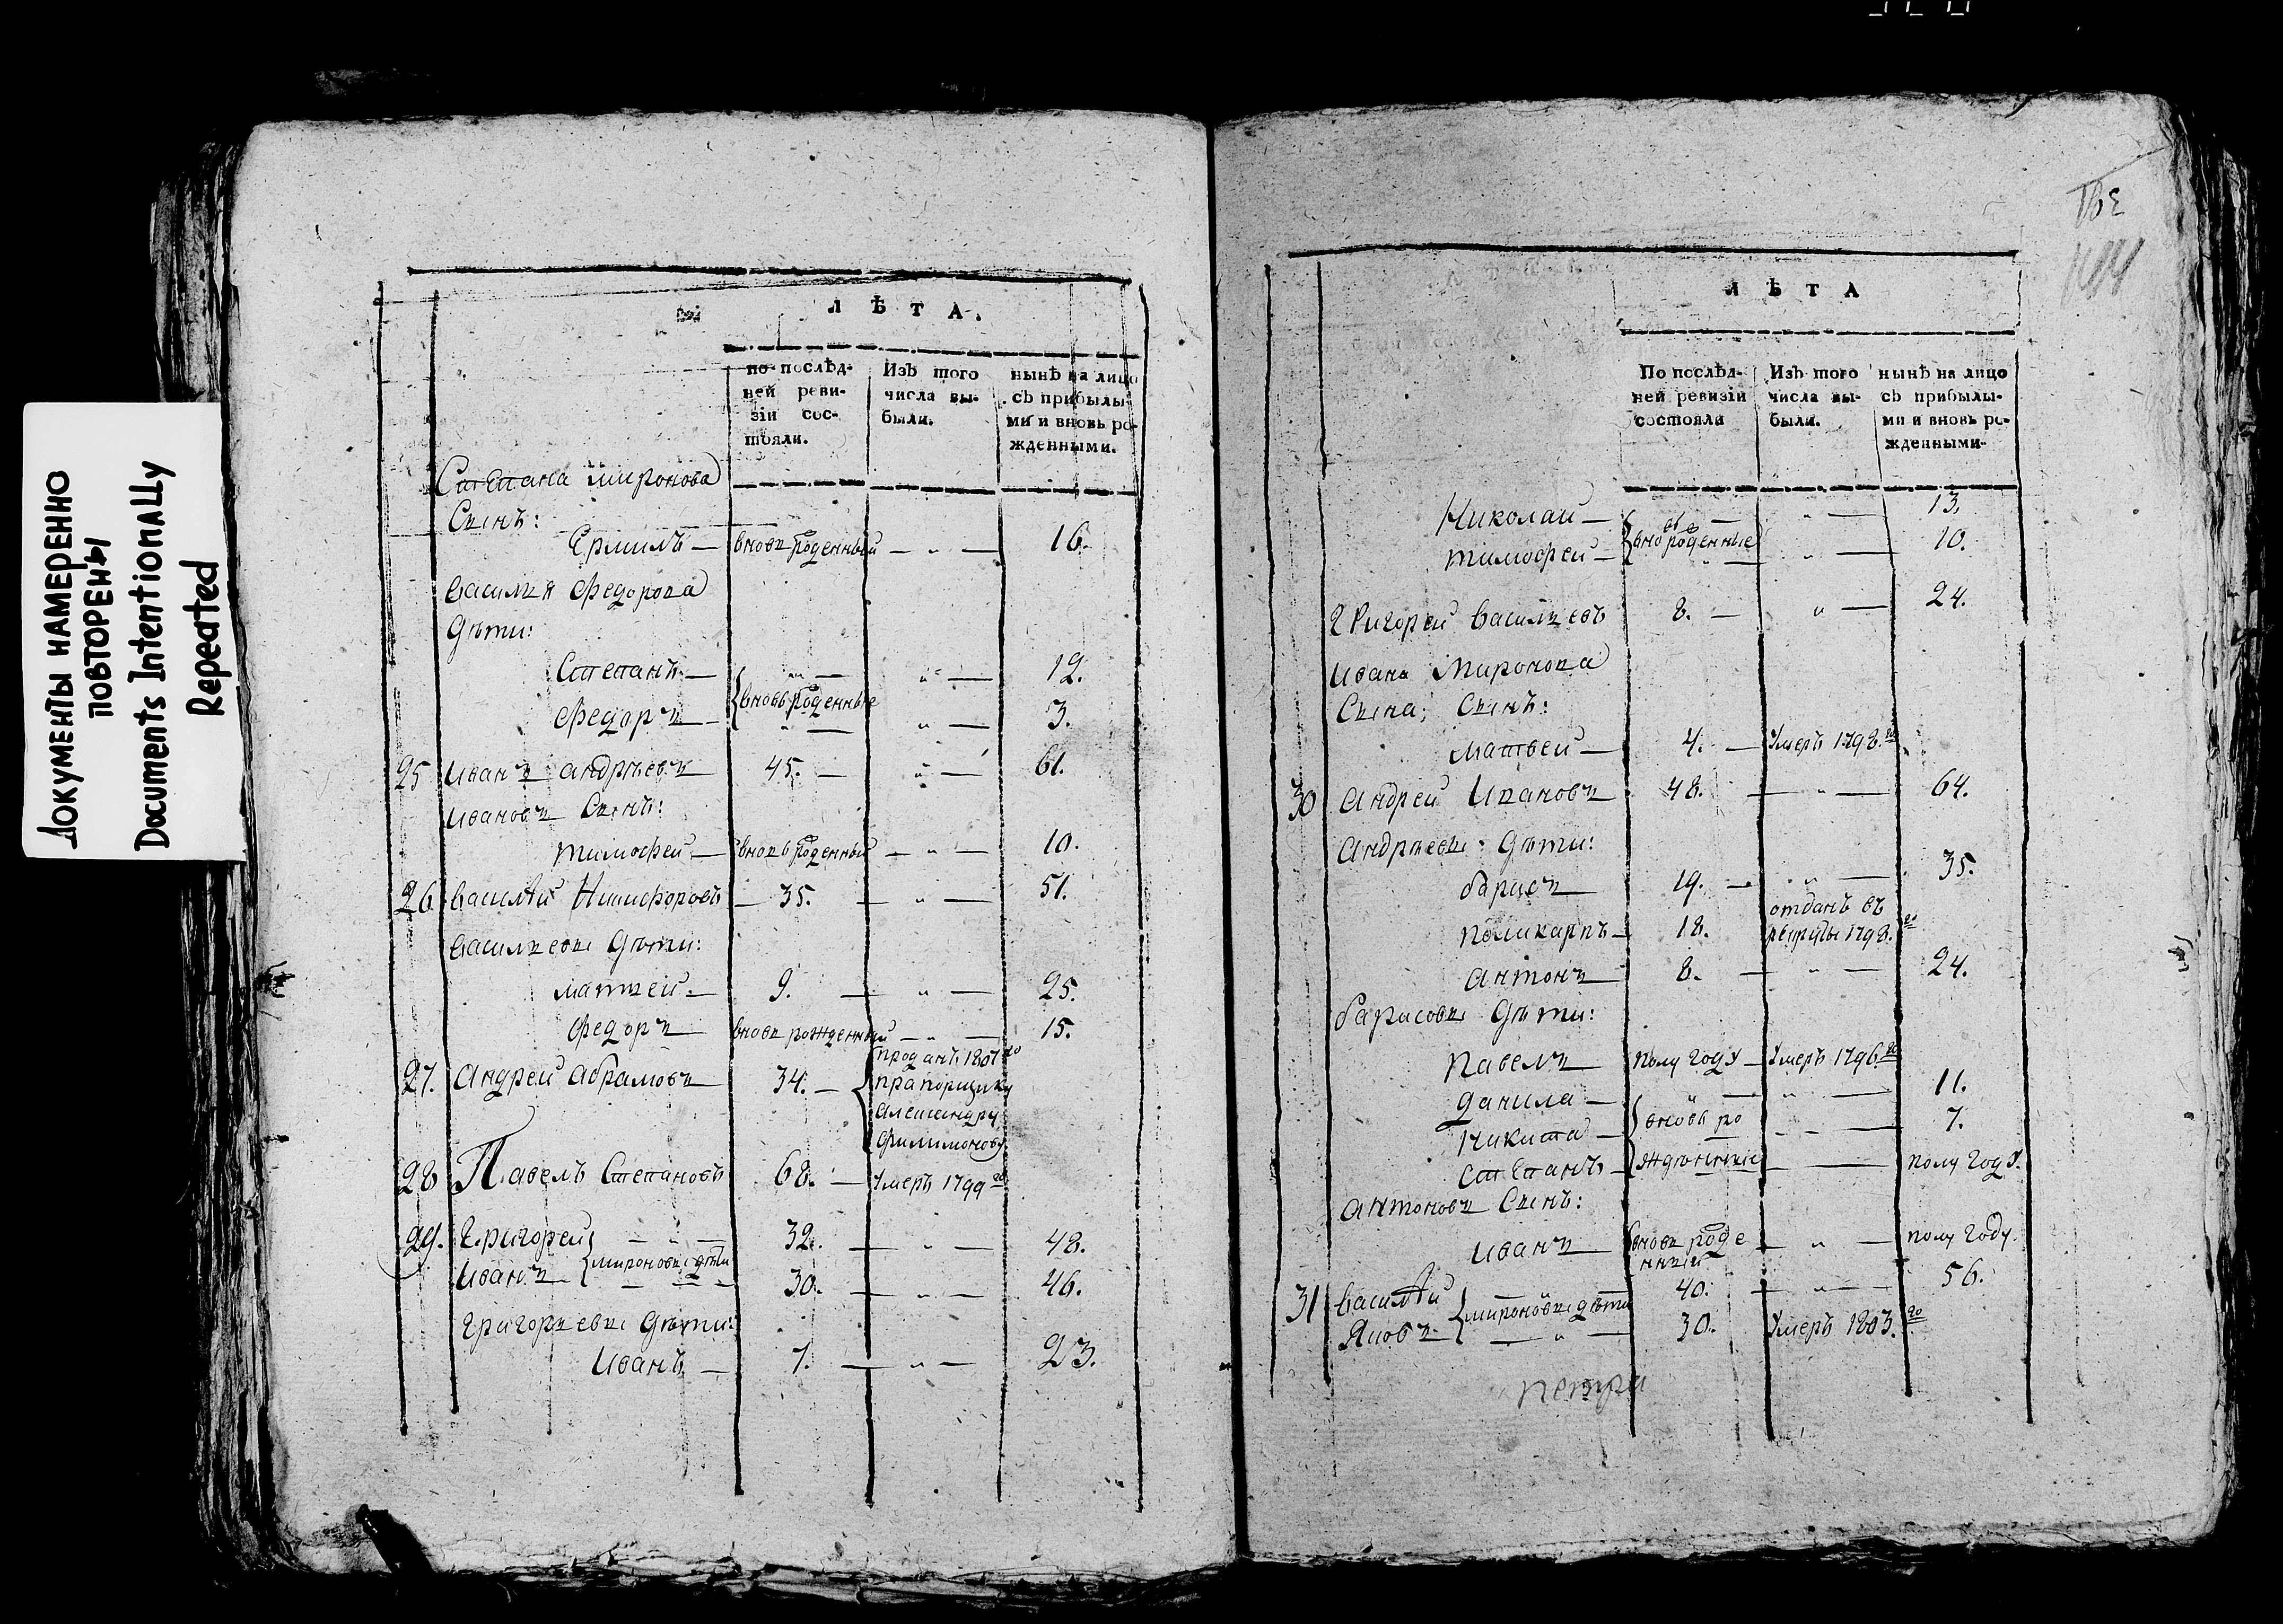 ДОКУМЕНТЫ НАМЕРЕННО
ПОВТОРЕНЫ
Documents Intentionally
Repeated
Л Ѣ Т А.
по послѣд-
ней реви-
зіи сос-
тояли.
Изъ того
числа вы-
были.
нынѣ на лицо
съ прибылы-
ми и вновь ро-
жденными.
Степана миронова
Сынъ:
Ермилъ — вновь роденный — " — 16.
василья федорова
дѣти:
Степанъ — " — " — 19.
вновь роденные
федоръ — " — " — 3.
25 иванъ андрѣевъ 45. — " — 61.
ивановъ Сынъ:
тимофей — вновь роденный — " — 10.
26. василѣй Никифоровъ — 35. — " — 51.
васильевы дѣти:
матвей — 9. — " — 25.
федоръ вновь рожденный — " — 15.
27. андрей абрамовъ 34. — проданъ 1807го
прапорщику
александру
филимонову
28 Павелъ Степановъ 68. — Умеръ 1799го
29. Григорей — " — 32. — " — 48.
мироновы дѣти
иванъ 30. — " — 46.
григорьевы дѣти:
иванъ — 7. — " — 23.
Л Ѣ Т А
По послѣд-
ней ревизіи
состояли
Изъ того
числа вы-
были.
нынѣ на лицо
съ прибылы-
ми и вновь ро-
жденными-
Николай — " — 13.
вновь роденные
тимофей — " — 10.
григорей васильевъ 8. — " — 24.
ивана миронова
Сына; Сынъ:
матвей — 4. — Умеръ 1798.го
30 андрей ивановъ 48. — " — 64.
андрѣевы дѣти:
барисъ 19. — " — 35.
поликарпъ — 18. отданъ въ
рекруты 1798.го
антонъ 8. — " — 24.
барисовы дѣти:
Павелъ полу году — Умеръ 1796го
данила — " — 11.
никита — вновь ро — " — 7.
степанъ — жденныи — полу году.
антоновъ Сынъ:
иванъ — вновь роде — " — полу году.
нный
31 василѣй — " — 40. — " — 56.
мироновы дѣти
Яковъ — " — 30. Умеръ 1803.го